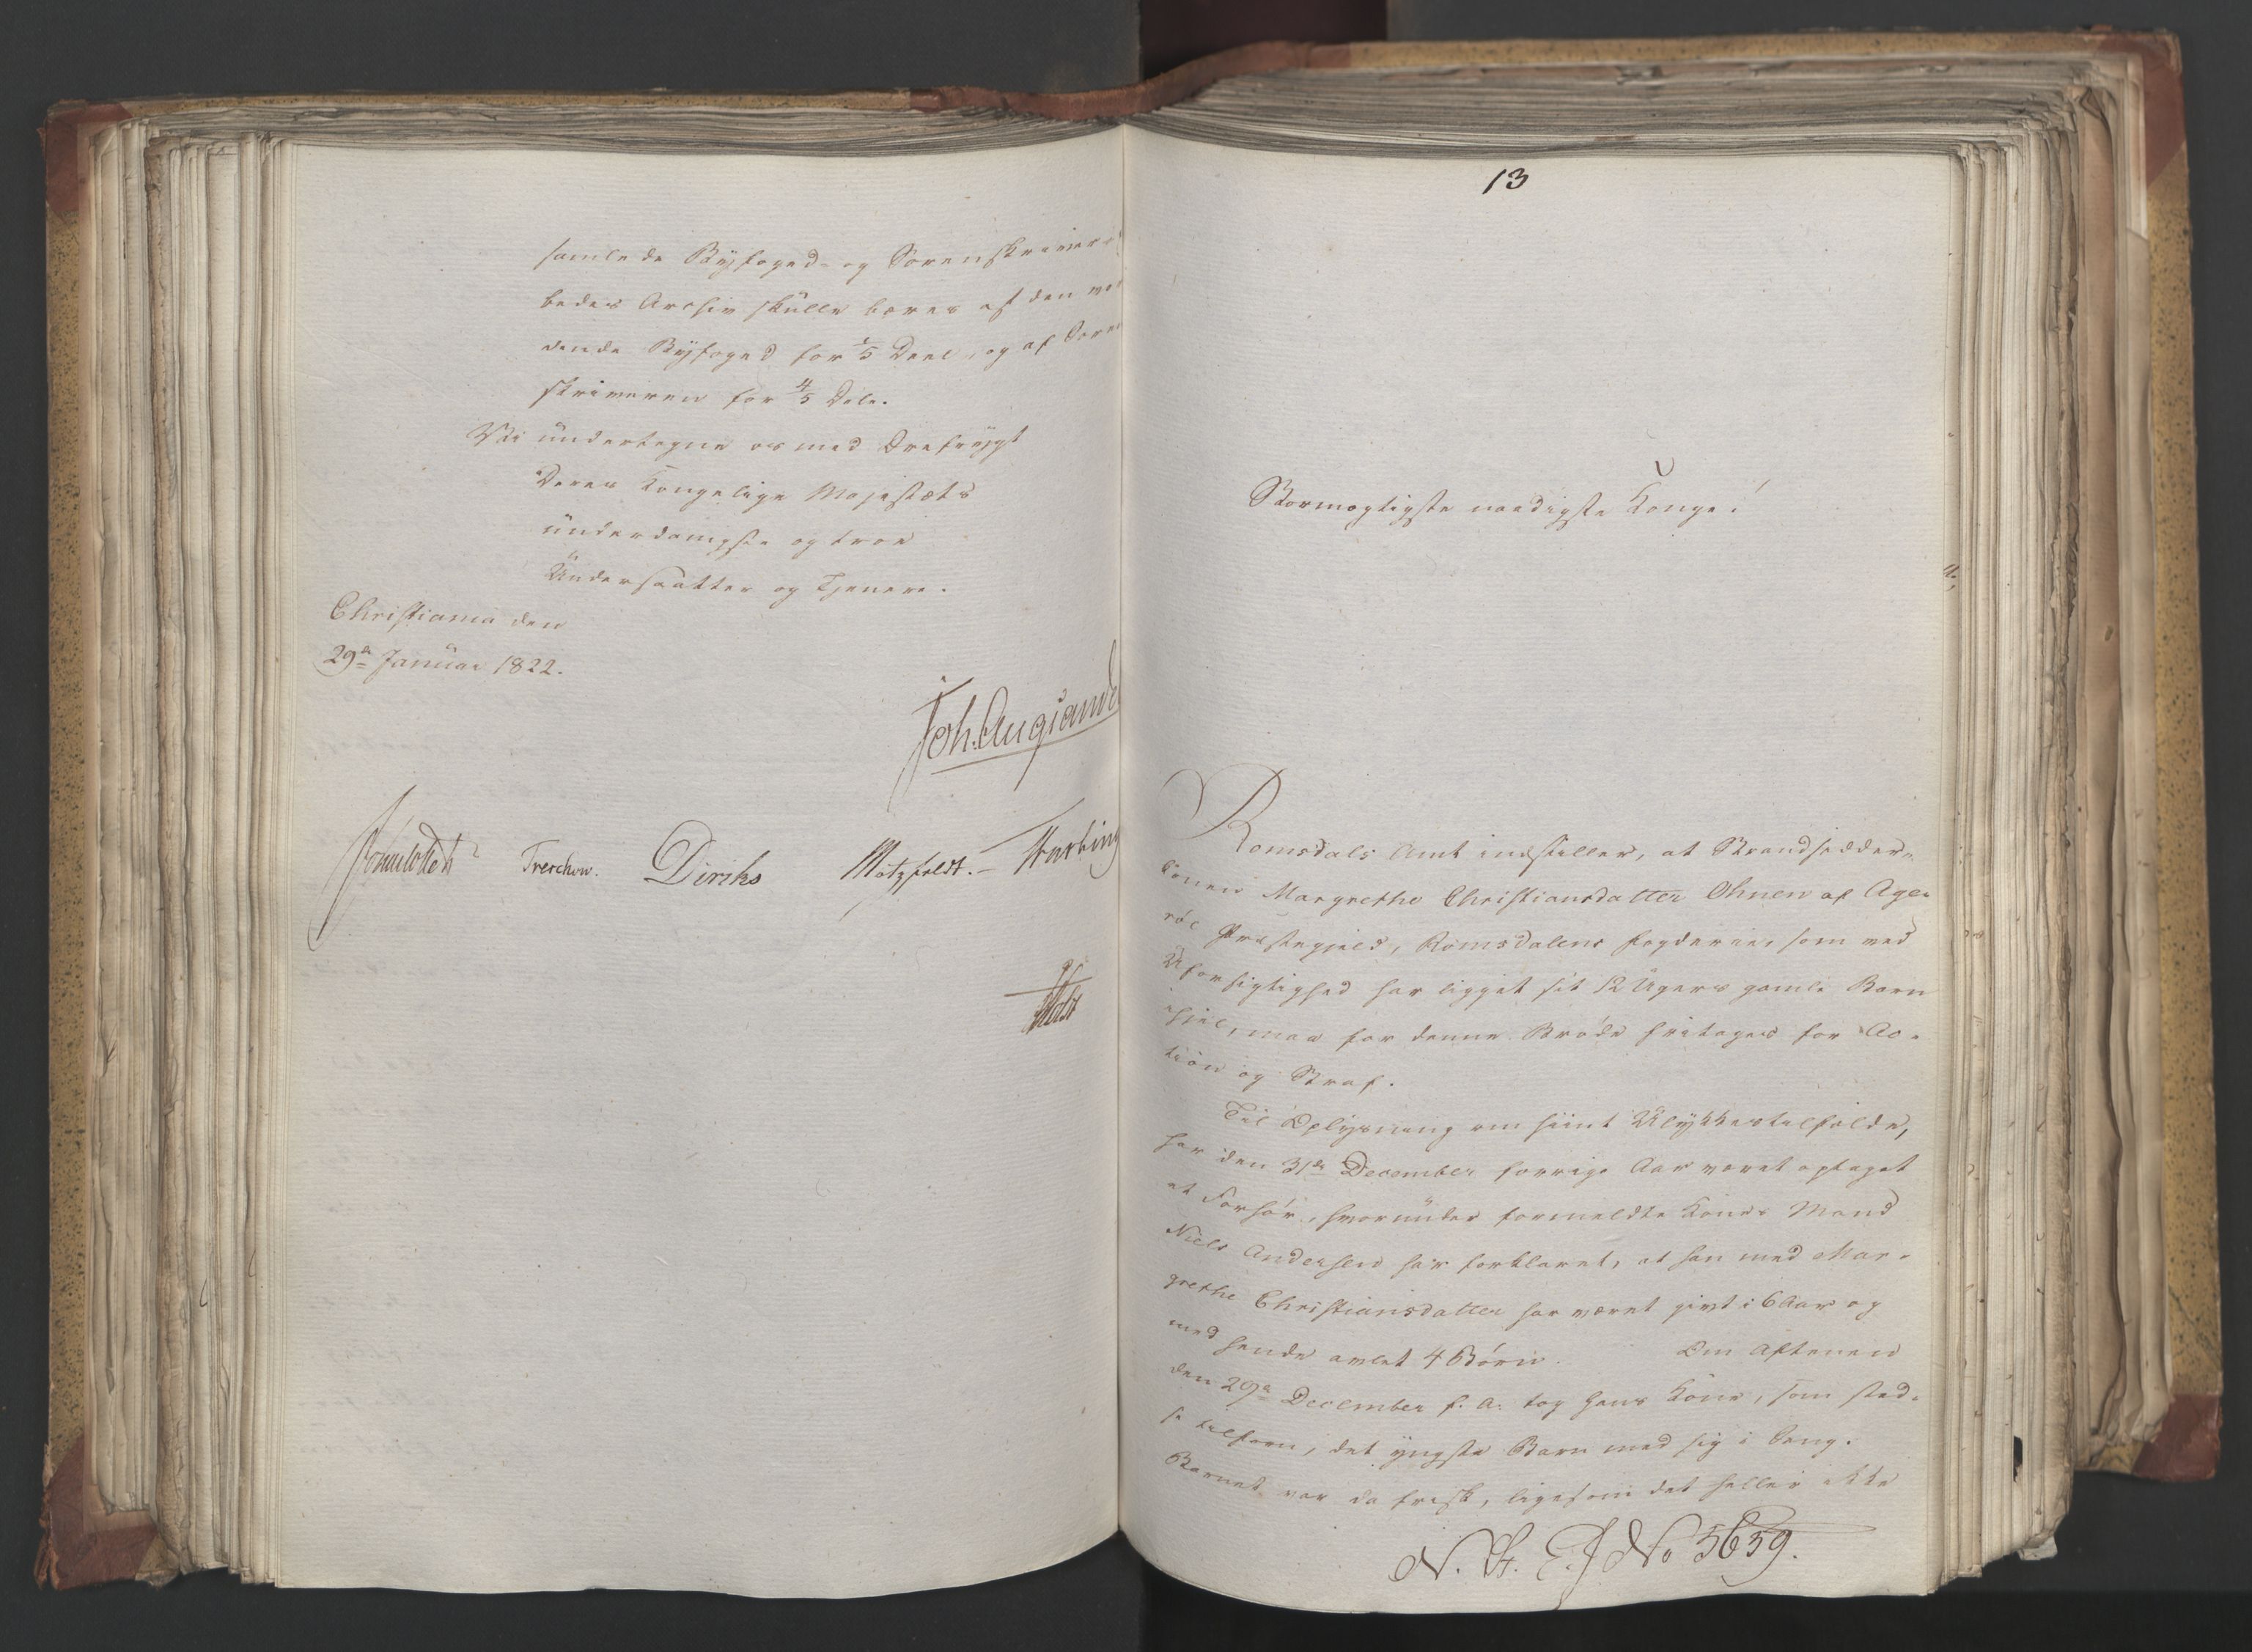 samlede Byfoged- og Sorenskriver
bedes Archiv skulle bæres af den
dende Byfoged for 1/5 Deel, og af Soren
skriveren for 4/5 Dele.
Vi undertegne os med Ærefrygt
Deres Kongelige Majestæts
underdanigste og troe
Undersaatter og Tjenere.
Christiania den
29de Januar 1822.
Joh. Aug Sande
Sommerfeldt Treschow. Diriks Motzfeldt. Fasting
Holst
13
Stormægtigste naadigste Konge!
Romsdals Amt indstiller, at Strandsidder-
konen Margrethe Christiansdatter Ohnen af Age-
röe Præstegjeld, Romsdalens Fogderie, som ved
Uforsigtighed har ligget sit 12 Ugers gamle Barn
ihjel, maa for denne Bröde fritages for Ac-
tion og Straf.
Til Oplysning om hiint Ulykkestilfælde,
har den 31te December forrige Aar været optaget
et Forhör, hvorunder formeldte Kones Mand
Niels Andersen har forklaret, at han med Mar-
grethe Christiansdatter har været givt i 6 Aar og
med hende avlet 4 Börn. Om Aftenen
den 29de December f. A. tog hans Kone, som sted-
se tilforn, det yngste Barn med sig i Seng.
Barnet var da frisk, ligesom det heller ikke
N. St. E. J No 5659.